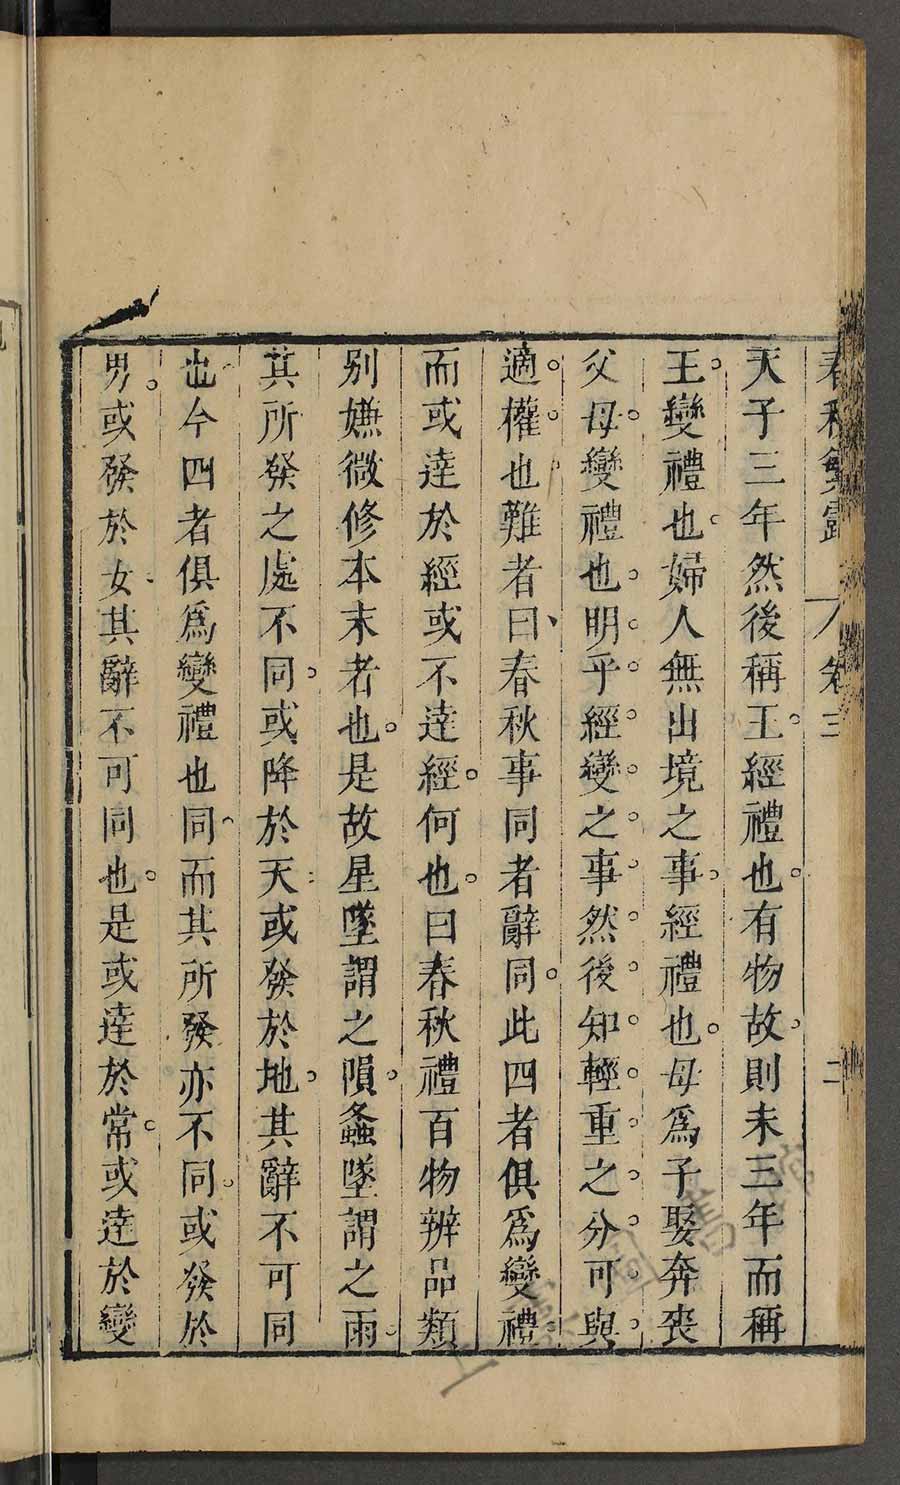 春秋繁露 卷三 二
天子三年然後稱王經禮也有物故則未三年而稱
王變禮也婦人無出境之事經禮也母爲子娶奔喪
父母變禮也明乎經變之事然後知輕重之分可與
適權也難者曰春秋事同者辭同此四者俱爲變禮
而或達於經或不達經何也曰春秋禮百物辨品類
别嫌微修本末者也是故星墜謂之隕螽墜謂之雨
其所發之處不同或降於天或發於地其辭不可同
也今四者俱爲變禮也同而其所發亦不同或發於
男或發於女其辭不可同也是或達於常或達於變